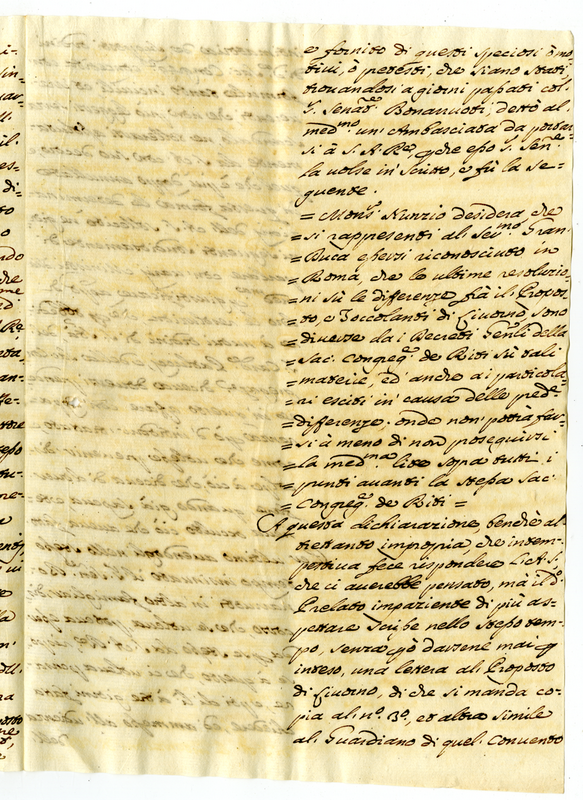 e fornito di questi speciosi mo=
tivi, ò pretesti, che siano stati
trovandosi a giorni passati col
S. Senat.re Bonarroti, dettò al
med.mo un'Ambasciata da portar
si à S. A. R.le, che esso S. Sen.re
la volse in scritto, e fù la se=
guente.
= Mons.r Nunzio desidera, che
= si rappresenti al Ser.mo Gran=
= Duca essersi riconosciuto in
= Roma, che le ultime resoluzio
= ni sù le differenze frà il Propos
= to, e Zoccolanti di Livorno, sono
= diverse da i Decreti Gen̄li della
= Sac. Congreg.e de Riti sù tali
= materie, ed' anche a i particola=
= ri esciti in' causa delle pred.e
= differenze; onde non' potrà far
= si à meno di non proseguirsi
= la med.ma lite sopra tutti i
= punti avanti la stessa Sac.
= Congreg.e de Riti =
A questa dichiarazione, benchè al
trettanto impropria, che intem=
pestiva fece rispondere L. A. S.,
che ci averebbe pensato, mà il d.o
Prelato impaziente di più as=
pettare scrisse nello stesso tem=
po, senza darsene mai
inteso, una lettera al Proposto
di Livorno, di che si manda co=
pia al n.o 3.o, et altra simile
al Guardiano di quel Convento